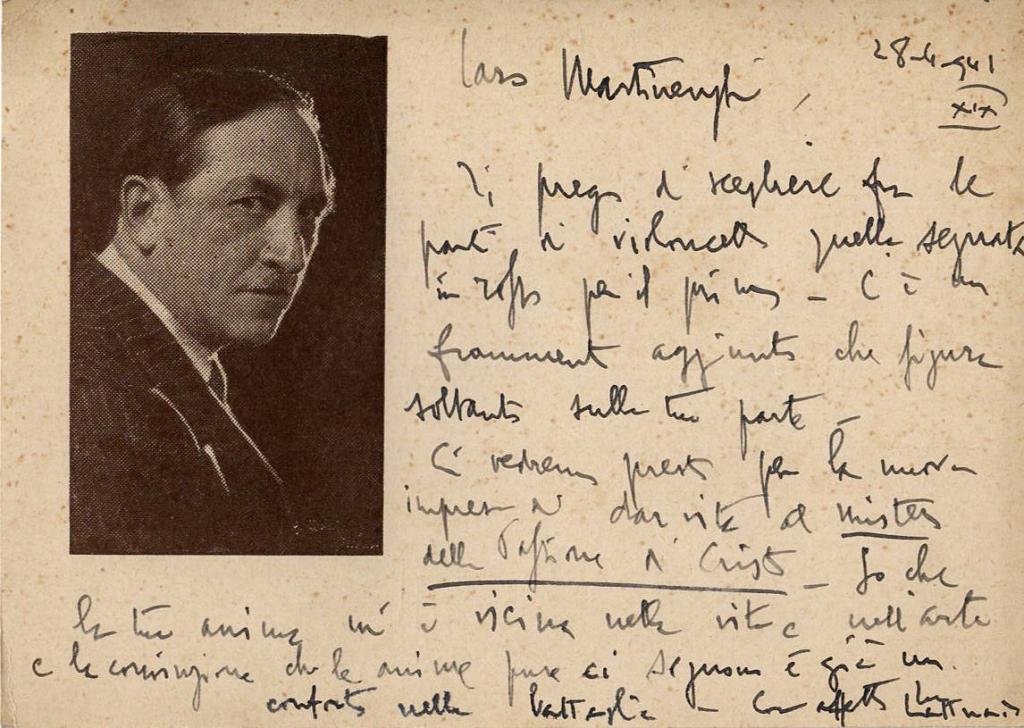 Caro Martinenghi,
28-4-941
XIX
Ti prego di scegliere fra le
parti di violoncello quella segnata
in rosso per il primo – C'è un
frammento aggiunto che figura
soltanto sulla tua parte –
Ci vedremo presto per la nuova
impresa di dar vita al mistero
della Passione di Cristo – So che
la tua anima m'è vicina nella vita e nell'arte
e la convinzione che le anime pure ci seguono è già un
conforto nella battaglia – Con affetto